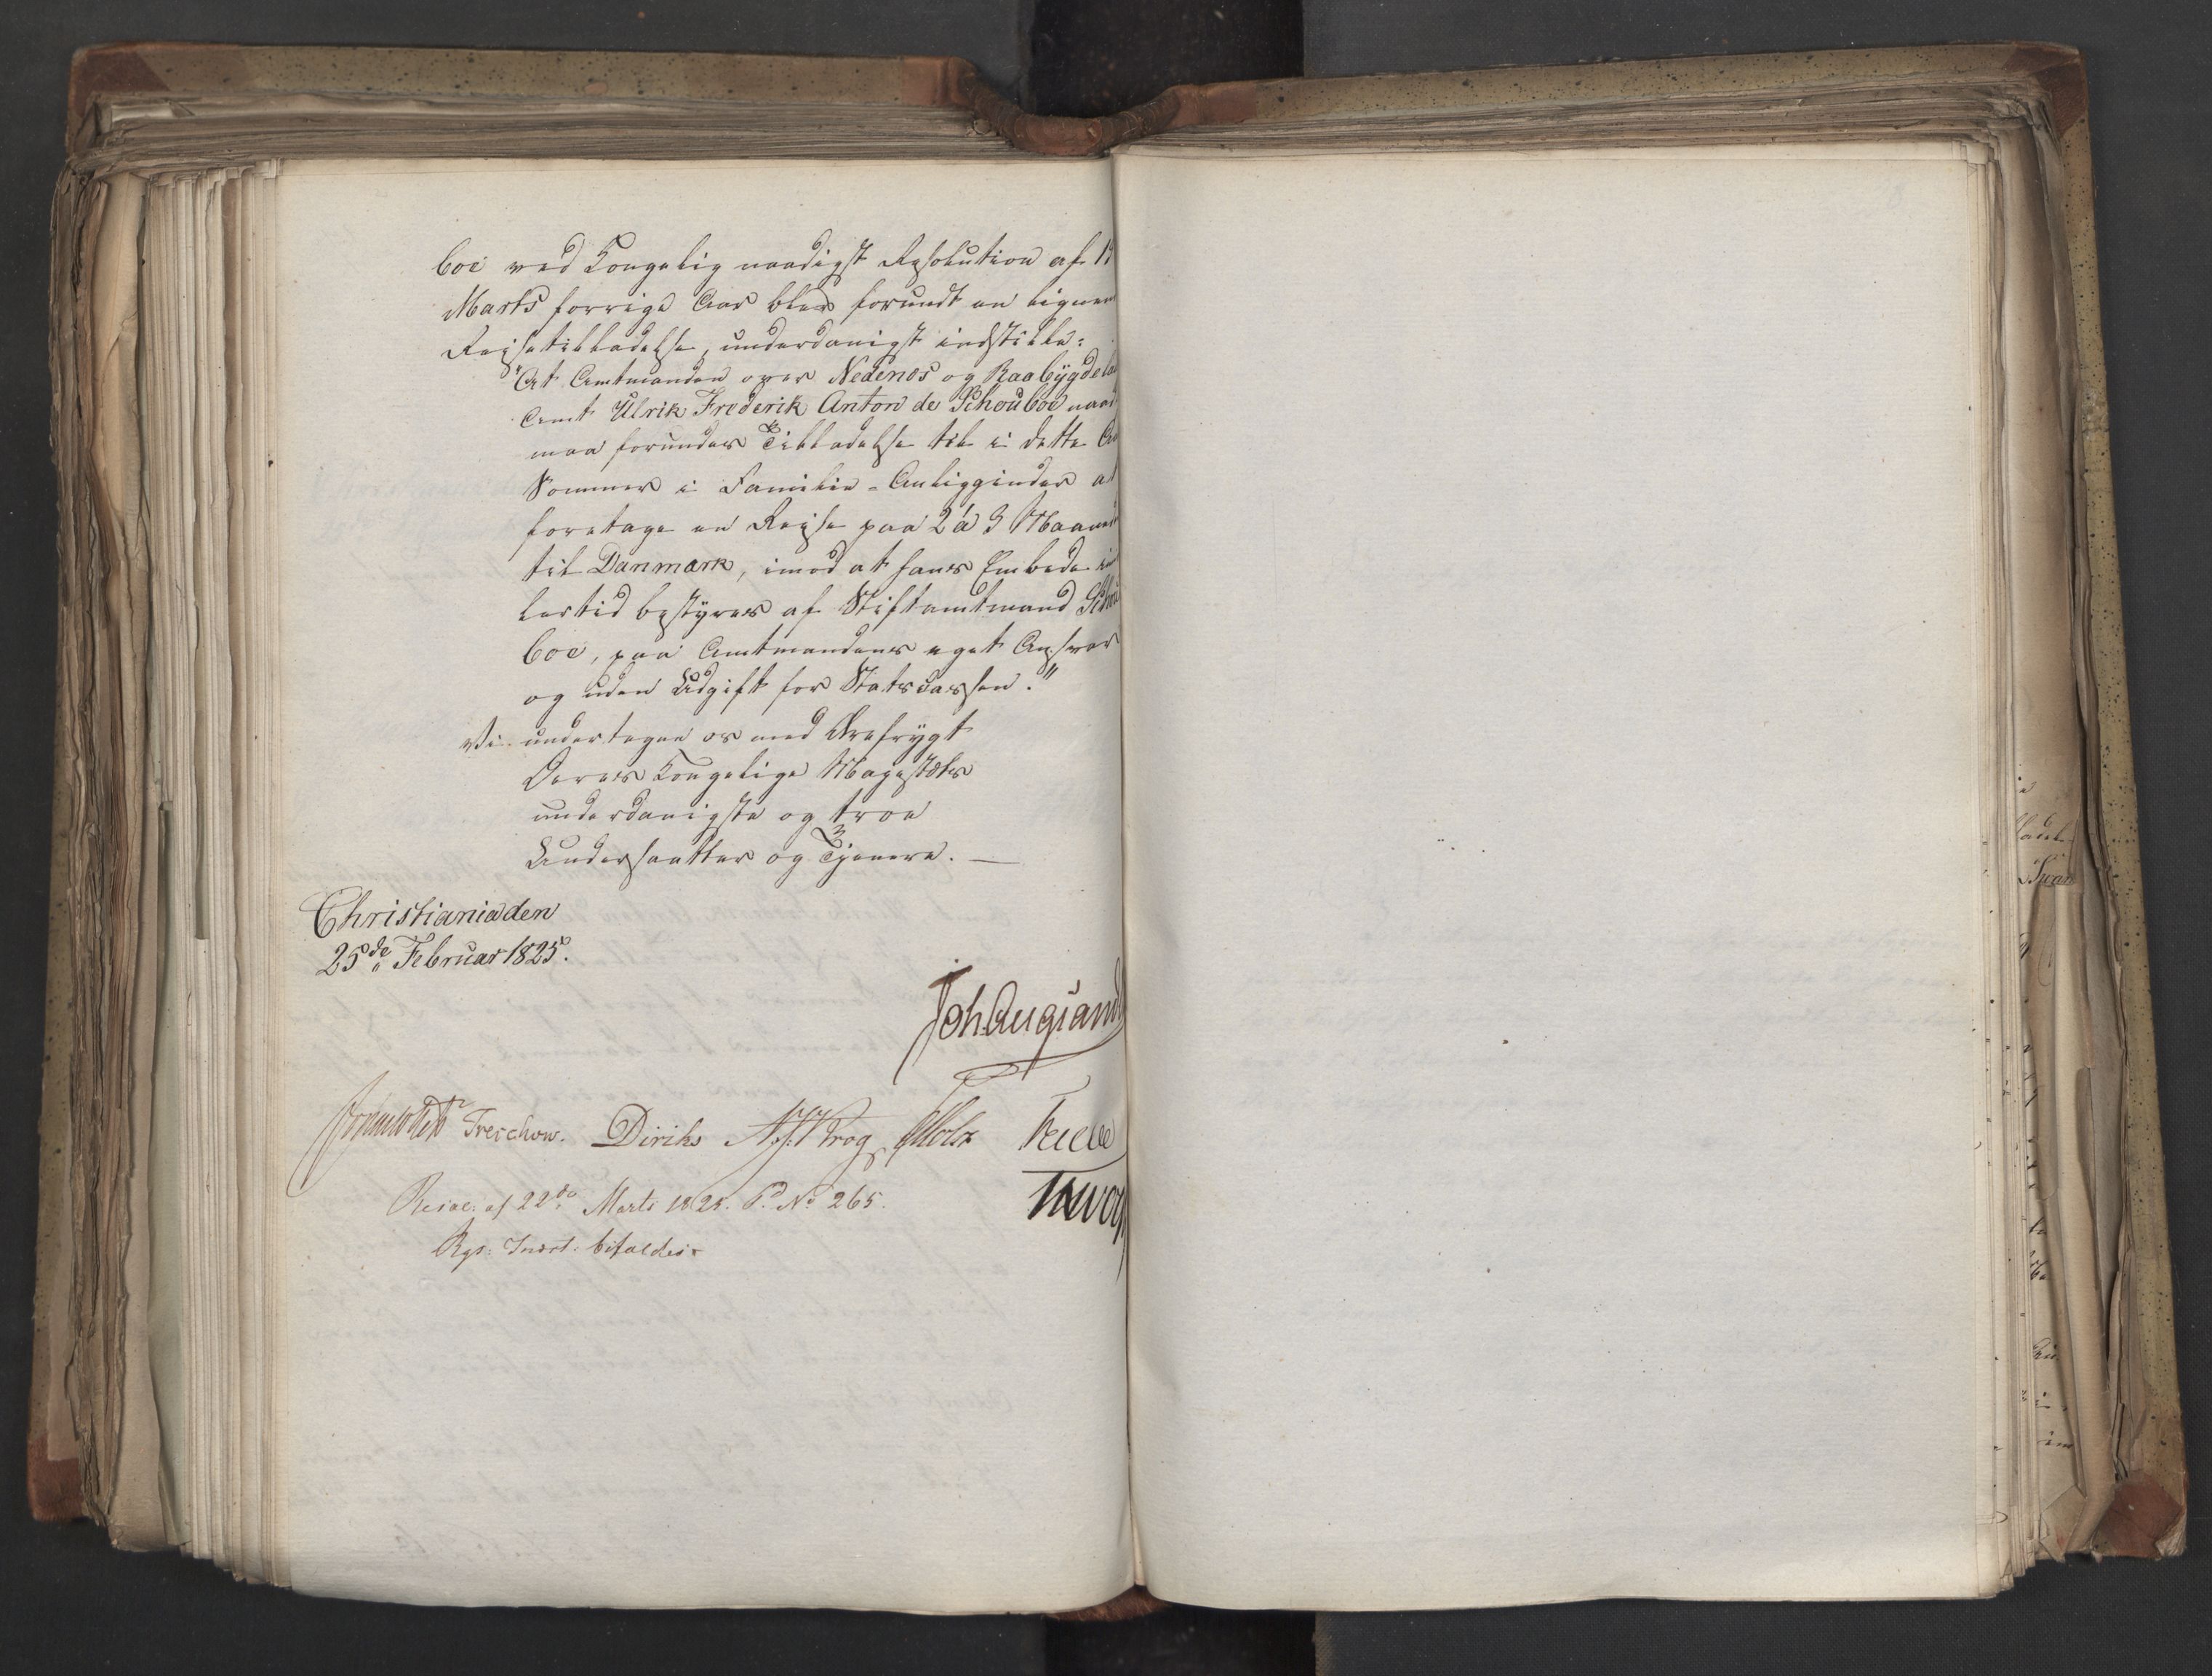 boe ved Kongelig naadigst Resolution af 1
Marts forrige Aar blev forundt en lignen
Reisetilladelse, underdanigst indstille:
"At Amtmanden over Nedenes og Raabygdela
Amt Ulrik Frederik Anton de Schouboe naad
maa forundes Tilladelse til i dette Aa
Sommer i Familie-Anligginder at
foretage en Reise paa 2 à 3 Maane
til Danmark, imod at hans Embede im
lertid bestyres af Stiftamtmand Schou
boe, paa Amtmandens eget Ansvar
og uden Udgift for Statscassen."
Vi undertegne os med Ærefrygt
Deres Kongelige Majestæts
underdanigste og troe
Undersaatter og Tjenere. —
Christiania den
25de Februar 1825.
Joh. Aug. Sand
Treschow. Diriks Krog Holst
Resol: af 22de Marts 1825. P. No 265.
Rgs: Indst: bifaldes